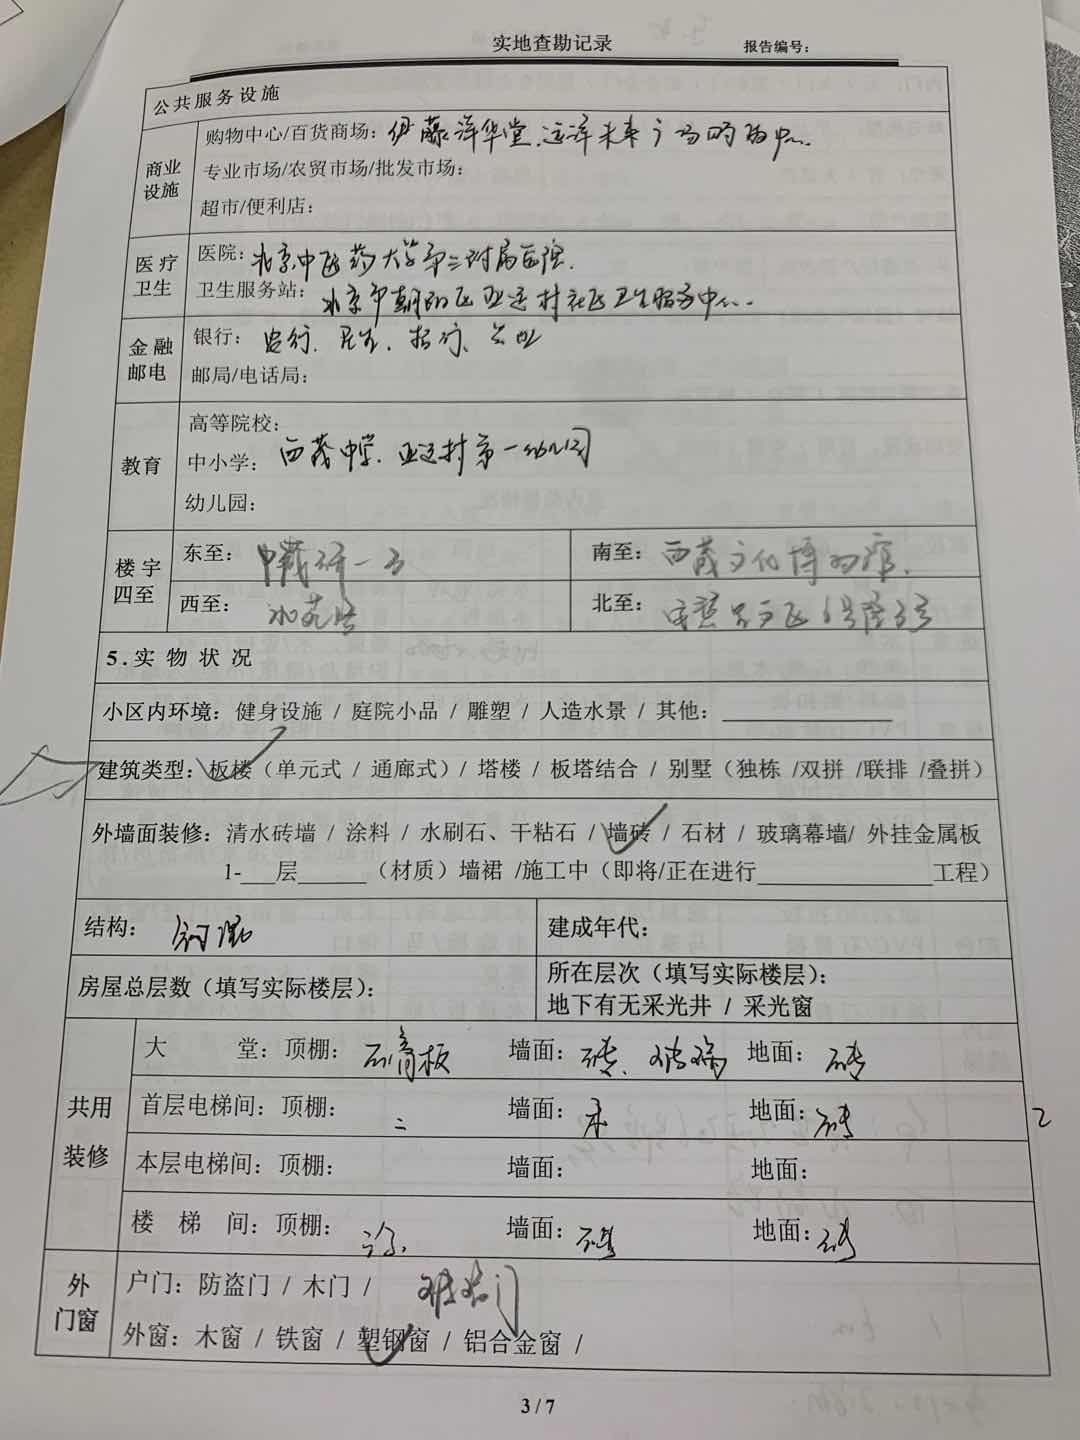 实地查勘记录 报告编号：
公共服务设施
商业设施
购物中心/百货商场：伊藤洋华堂、远洋未来广场购物中心.
专业市场/农贸市场/批发市场：
超市/便利店：
医疗卫生
医院：北京中医药大学第三附属医院.
卫生服务站：北京市朝阳区亚运村社区卫生服务中心.
金融邮电
银行：农行、民生、招行、
邮局/电话局：
教育
高等院校：
中小学：西藏中学、亚运村第一幼儿园
幼儿园：
楼宇四至
东至：中藏研一 南至：西藏文化博物馆.
西至：北苑路 北至：
5.实物状况
小区内环境：健身设施 / 庭院小品 / 雕塑 / 人造水景 / 其他：
建筑类型：板楼（单元式 / 通廊式）/ 塔楼 / 板塔结合 / 别墅（独栋 /双拼 /联排 /叠拼）
外墙面装修：清水砖墙 / 涂料 / 水刷石、干粘石 / 墙砖 / 石材 / 玻璃幕墙/ 外挂金属板
1-___层______（材质）墙裙 /施工中（即将/正在进行_______________工程）
结构：钢混 建成年代：
房屋总层数（填写实际楼层）： 所在层次（填写实际楼层）：
地下有无采光井 / 采光窗
共用装修
大堂：顶棚：石膏板 墙面：砖、玻璃 地面：砖
首层电梯间：顶棚： 墙面： 地面：砖
本层电梯间：顶棚： 墙面： 地面：
楼梯间：顶棚：涂. 墙面：砖 地面：砖
外门窗
户门：防盗门 / 木门 / 玻璃门
外窗：木窗 / 铁窗 / 塑钢窗 / 铝合金窗 /
3 / 7